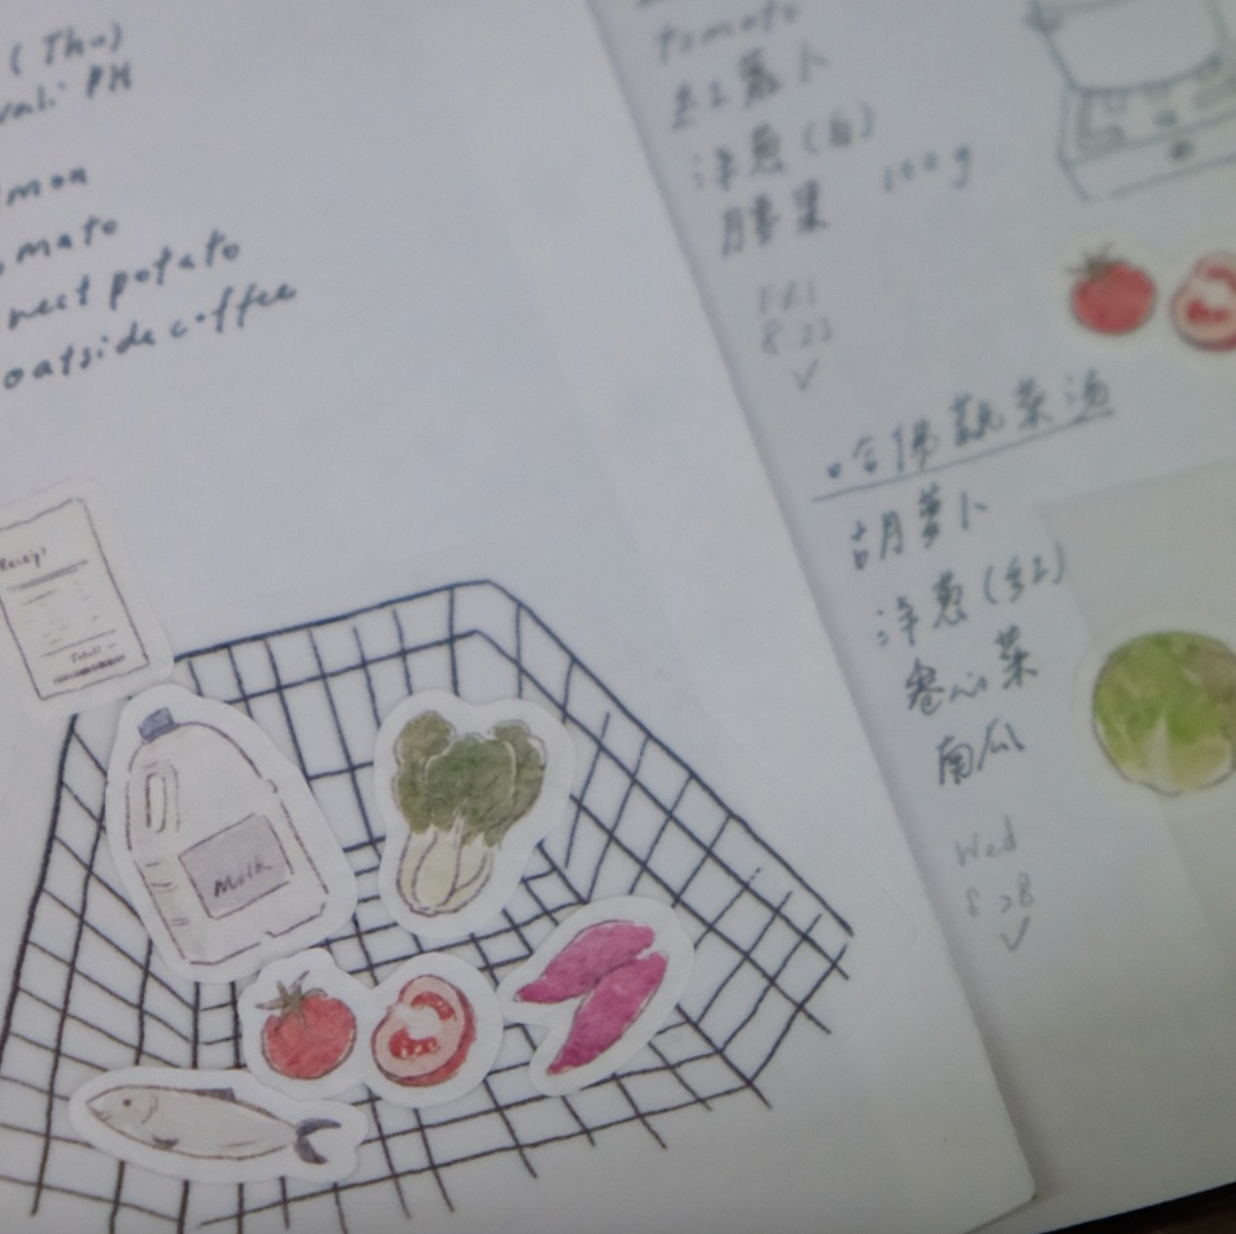 (Thu)
PH
mon
mato
potato
oatside coffee
Receipt
Total
Milk
tomato
红萝卜
洋葱(白)
腰果 100g
FRI
8.23
✓
哈佛蔬菜汤
胡萝卜
洋葱(红)
卷心菜
南瓜
Wed
8 28
✓